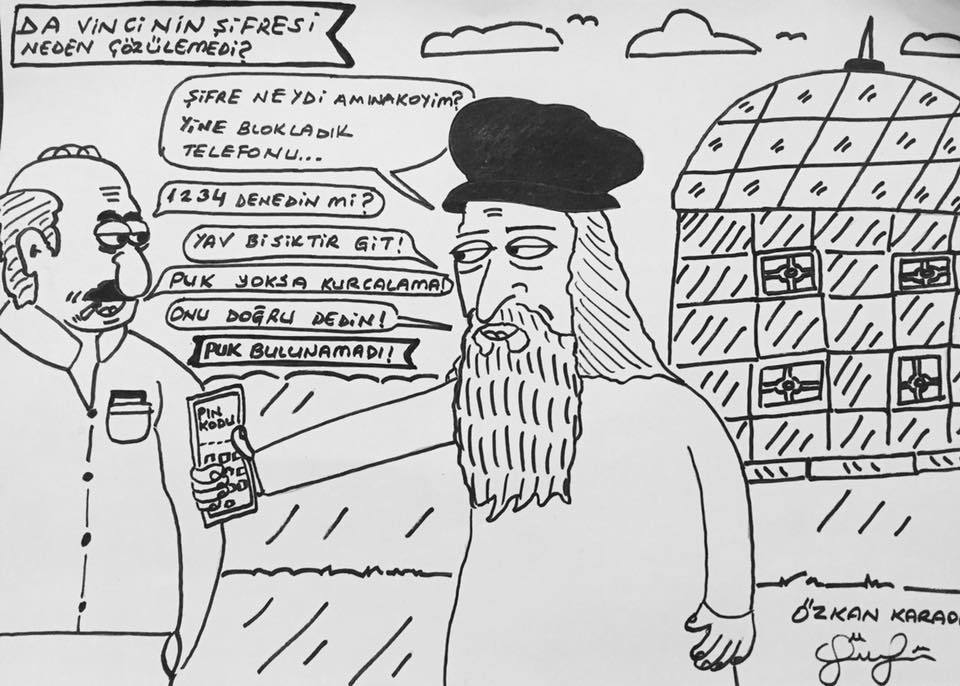 DA VİNCİNİN ŞİFRESİ
NEDEN ÇÖZÜLEMEDİ?
ŞİFRE NEYDİ AMINAKOYİM?
YİNE BLOKLADIK
TELEFONU...
1234 DENEDİN Mİ?
YAV BİSİKTİR GİT!
PUK YOKSA KURCALAMA!
ONU DOĞRU DEDİN!
PUK BULUNAMADI!
PIN
KODU
ÖZKAN KARAD